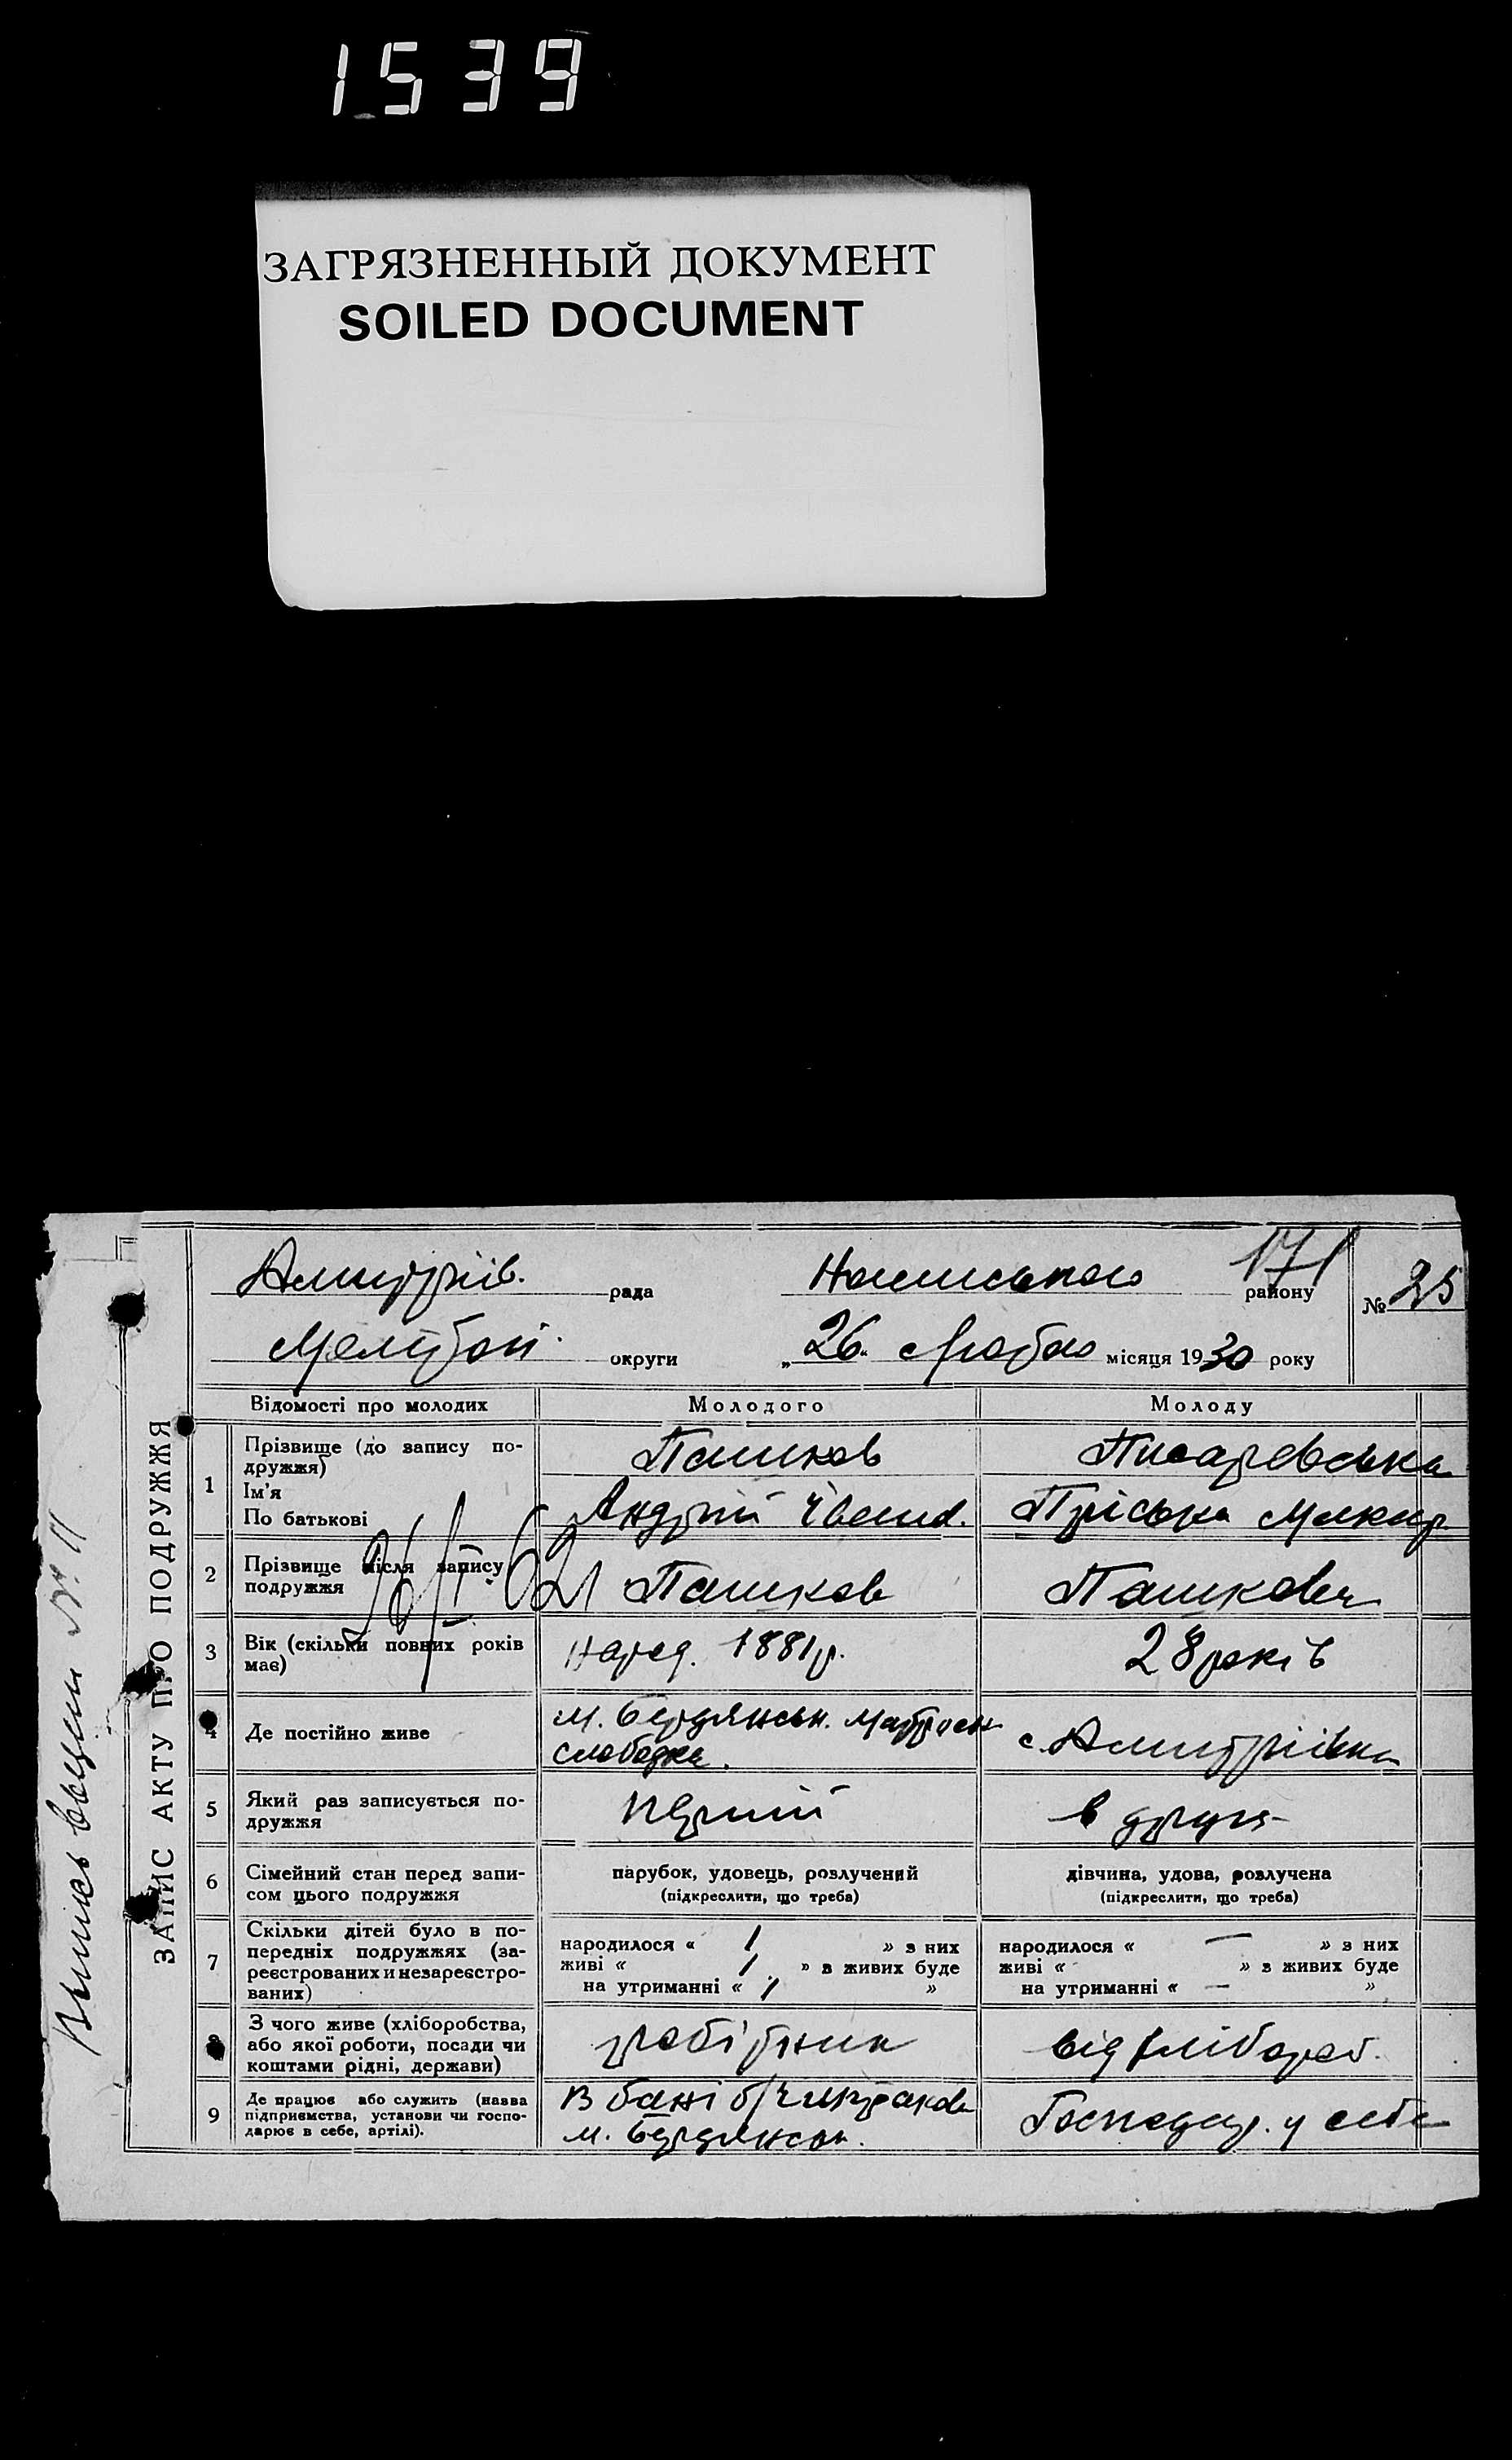 1539
ЗАГРЯЗНЕННЫЙ ДОКУМЕНТ
SOILED DOCUMENT
171
рада району № 25
округи „26“ місяця 1930 року
ЗАПИС АКТУ ПРО ПОДРУЖЖЯ
Відомості про молодих Молодого Молоду
1 Прізвище (до запису по-
дружжя) Пашков Писаревська
Ім'я
По батькові Андрій Пріська
26/II-62
2 Прізвище після запису
подружжя Пашков Пашкова
3 Вік (скільки повних років
має) народ. 1881р. 28 років
4 Де постійно живе м. Бердянськ.
слободка. с. Дмитріївка
5 Який раз записується по-
дружжя перший в друге
6 Сімейний стан перед запи-
сом цього подружжя
парубок, удовець, розлучений
(підкреслити, що треба)
дівчина, удова, розлучена
(підкреслити, що треба)
7 Скільки дітей було в по-
передніх подружжях (за-
реєстрованих и незареєстро-
ваних)
народилося « 1 » з них
живі « 1 » з живих буде
на утриманні « 1 »
народилося « — » з них
живі « » з живих буде
на утриманні « — »
8 З чого живе (хліборобства,
або якої роботи, посади чи
коштами рідні, держави) робітник від хлібороб.
9 Де працює або служить (назва
підприємства, установи чи госпо-
дарює в себе, артілі).
В бані
м. Бердянськ.
Господар. у себе